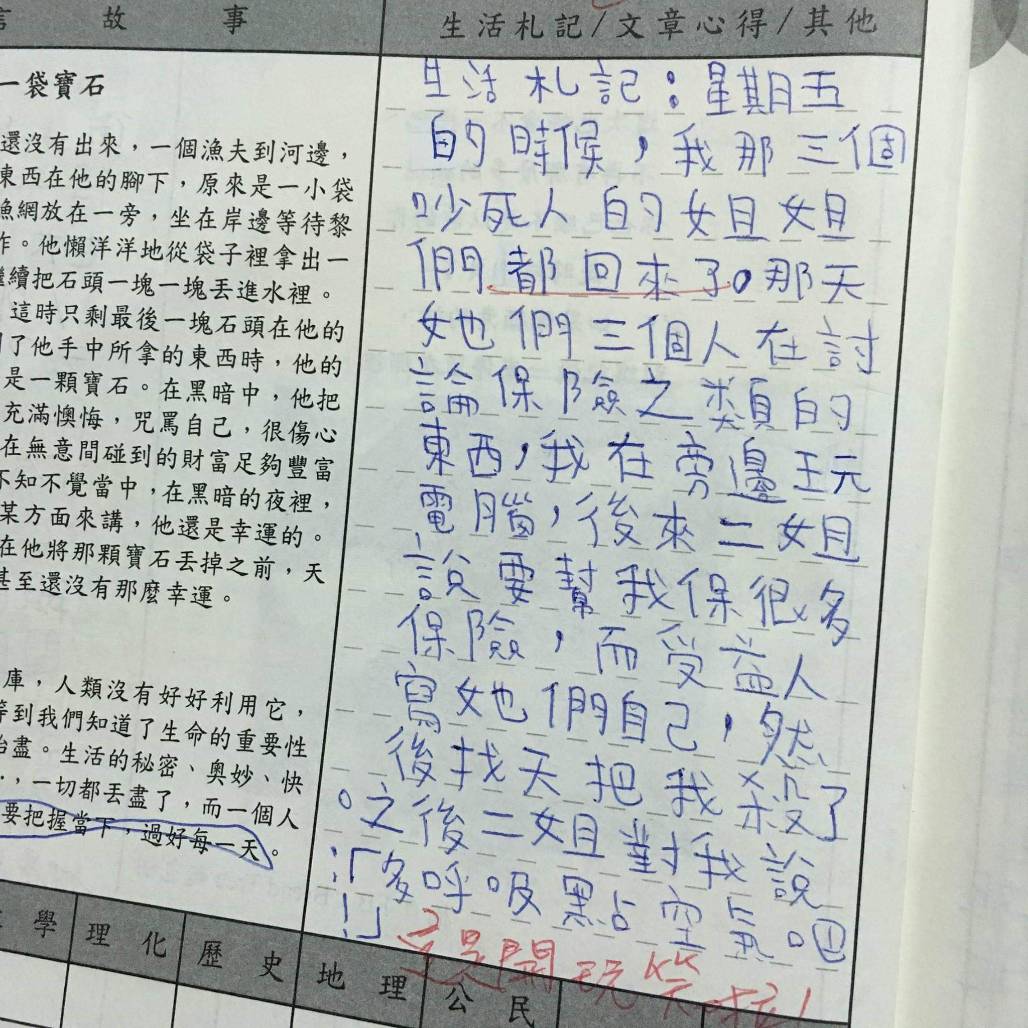 言故事
一袋寶石
還沒有出來，一個漁夫到河邊，
東西在他的腳下，原來是一小袋
漁網放在一旁，坐在岸邊等待黎
作。他懶洋洋地從袋子裡拿出一
繼續把石頭一塊一塊丟進水裡。
這時只剩最後一塊石頭在他的
了他手中所拿的東西時，他的
是一顆寶石。在黑暗中，他把
充滿懊悔，咒罵自己，很傷心
在無意間碰到的財富足夠豐富
不知不覺當中，在黑暗的夜裡，
某方面來講，他還是幸運的。
在他將那顆寶石丟掉之前，天
甚至還沒有那麼幸運。
庫，人類沒有好好利用它，
等到我們知道了生命的重要性
殆盡。生活的秘密、奧妙、快
，一切都丟盡了，而一個人
要把握當下，過好每一天。
生活札記/文章心得/其他
生活札記：星期五
的時候，我那三個
吵死人的姐姐
們都回來了。那天
她們三個人在討
論保險之類的
東西，我在旁邊玩
電腦，後來二姐
說要幫我保很多
保險，而受益人
寫她們自己，然
後找天把我殺了
。之後二姐對我說
:「多呼吸點空氣吧
!!」
這是開玩笑啦!
學 理化 歷史 地理 公民